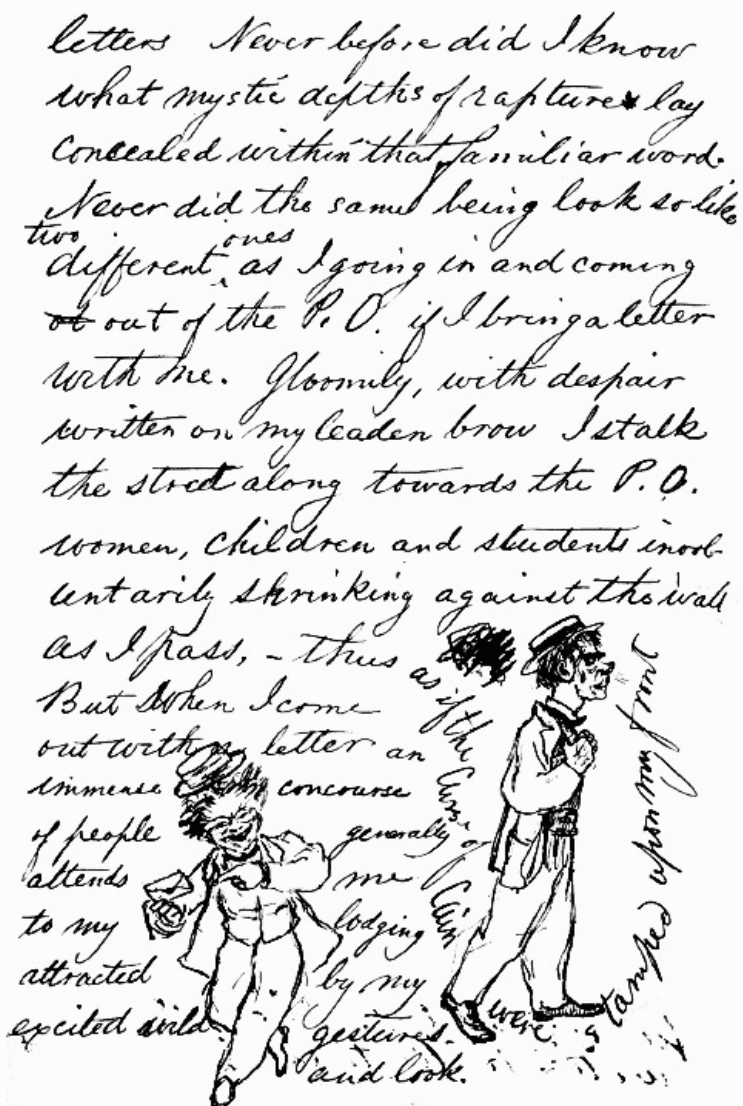 letters Never before did I know
what mystic depths of rapture lay
concealed within that familiar word.
Never did the same being look so like
two ones
different ^ as I going in and coming
out of the P. O. if I bring a letter
with me. Gloomily, with despair
written on my leaden brow I stalk
the street along towards the P. O.
women, children and students invol-
untarily shrinking against the wall
as I pass, – thus
as if the Curse of Cain
were
stamped upon my front
But When I come
out with a letter an
immense concourse
of people generally
attends me
to my lodging
attracted by my
excited wild gestures
and look.